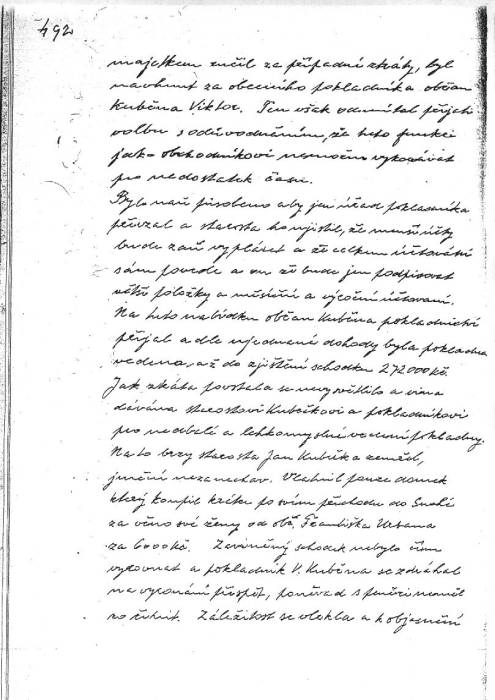 492
majetkem ručil za případné ztráty, byl
navrhnut za obecního pokladníka občan
Kuběna Viktor. Ten však odmítal přijati
volbu s odůvodněním, že tuto funkci
jako obchodníkovi nemožno vykonávat
pro nedostatek času.
Bylo naň působeno aby jen úřad pokladníka
převzal a starosta ho ujistil, že menší účty
bude zaň vyplácet a že celkem účtování
sám povede a on že bude jen podpisovat
větší položky a měsíční a výroční účtování.
Na tuto nabídku občan Kuběna pokladnictví
přijal a dle ujednané dohody byla pokladna
vedena, až do zjištění schodku 272000 Kč.
Jak ztráta povstala se nevysvětlilo a vina
dávána starostovi Kubíčkovi a pokladníkovi
pro nedbalé a lehkomyslné vedení pokladny.
Na to brzy starosta Jan Kubíčka zemřel,
jmění nezanechav. Vlastnil pouze domek
který koupil krátce po svém příchodu do Suché
za věno své ženy od obč. Františka Urbana
za 6000 Kč. Zaviněný schodek nebylo čím
vyrovnat a pokladník V. Kuběna se zdráhal
na vyrovnání přispět, poněvad s penězi neměl
co činit. Záležitost se vlekla a k objasnění